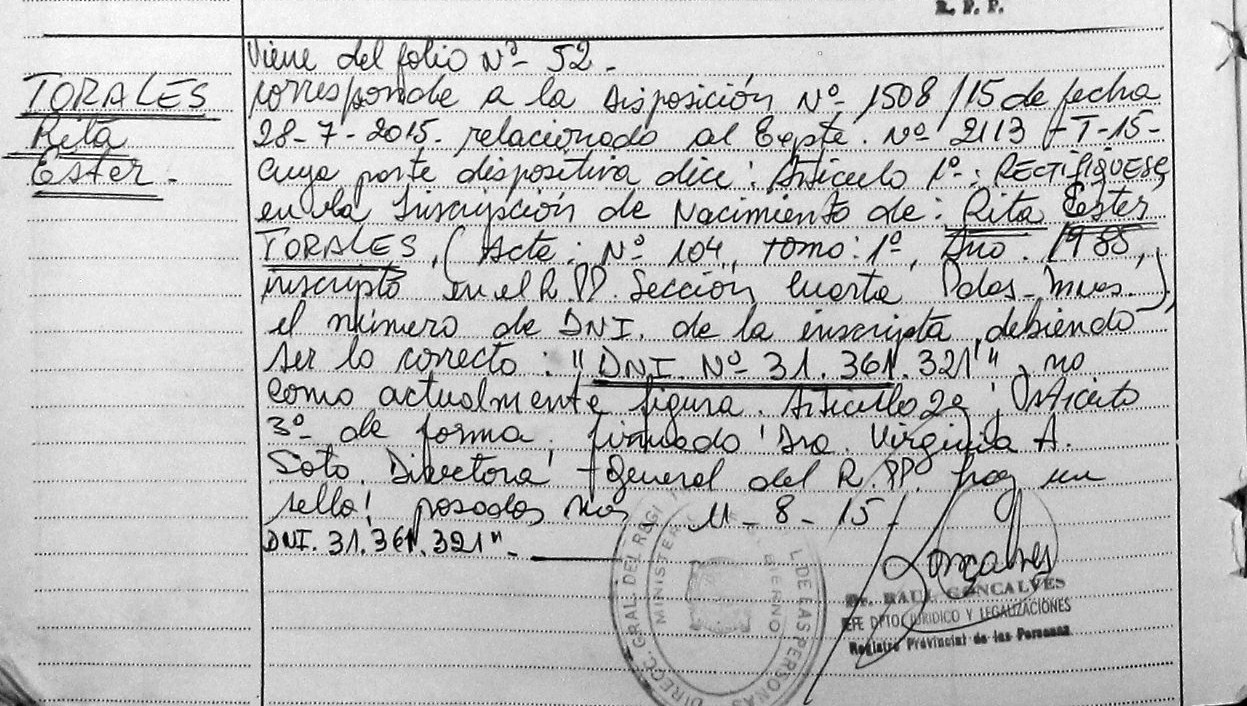 R. P. P.
TORALES
Rita
Ester.
Viene del folio Nº 52.
corresponde a la Disposición Nº 1508/15 de fecha
28-7-2015. relacionado al Expte. Nº 2113-T-15-
cuya parte dispositiva dice: Artículo 1º: RECTIFIQUESE
en la Inscripción de Nacimiento de: Rita Ester
TORALES, (Acta: Nº 104, Tomo: 1º, Año. 1985,
inscripto en el R.PP. Sección Cuarta Pdas-Mnes.),
el número de DNI. de la inscripta, debiendo
ser lo correcto: "DNI. Nº 31.361.321" no
como actualmente figura. Artículo 2º,
3º de forma. firmado: Dra. Virginia A.
Soto. Directora General del R.PP. hay un
sello: posadas Mnes 11-8-15/
DNI. 31.361.321"
Goncalves
Dr. RAUL GONCALVES
JEFE DPTO. JURIDICO Y LEGALIZACIONES
Registro Provincial de las Personas
DIRECC. GRAL. DEL REGI L DE LAS PERSONAS
MINISTER BIERNO